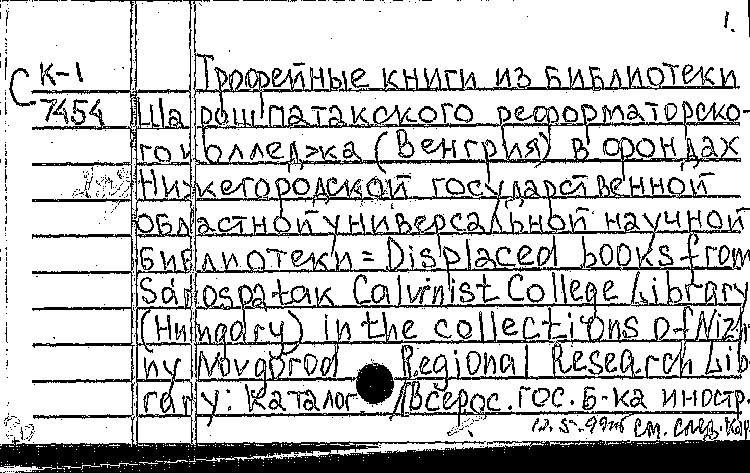 1.
К-1 Трофейные книги из библиотеки
С 7454 Шарошпатакского реформаторско-
го колледжа (Венгрия) в фондах
Нижегородской государственной
областной универсальной научной
библиотеки = Displaced books from
Sárospatak Calvinist College Library
(Hungary) in the collections of Nizh
ny Novgorod Regional Research Lib
rary: каталог / Всерос. гос. б-ка иностр.
см. след. кар